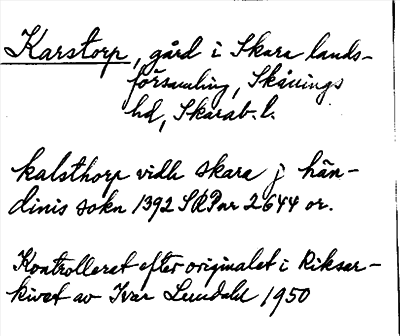 Karstorp, gård i Skara lands-
församling, Skånings
hd, Skarab. l.
kalsthorp vidh skara j hän-
dinis sokn 1392 SRPar 2644 or.
Kontrolleret efter originalet i Riksar-
kivet av Ivar Lundahl 1950